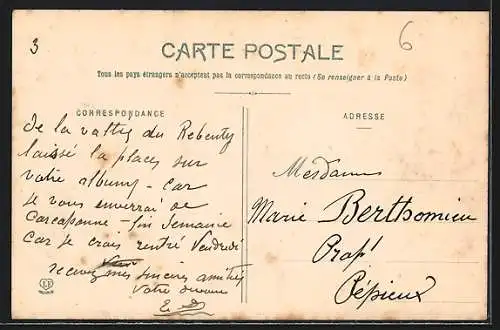 3
6
CARTE POSTALE
Tous les pays étrangers n'acceptent pas la correspondance au recto (Se renseigner à la Poste)
CORRESPONDANCE
ADRESSE
de la du Rebenty
laissé la places sur
votre album - car
je vous enverrai de
Carcassonne - fin Semaine
Car je crois rentré Vendredi
recevez mes sincères amitiés
Votre
Mesdames
Marie Berthomieu
Prop^t
Pépieux